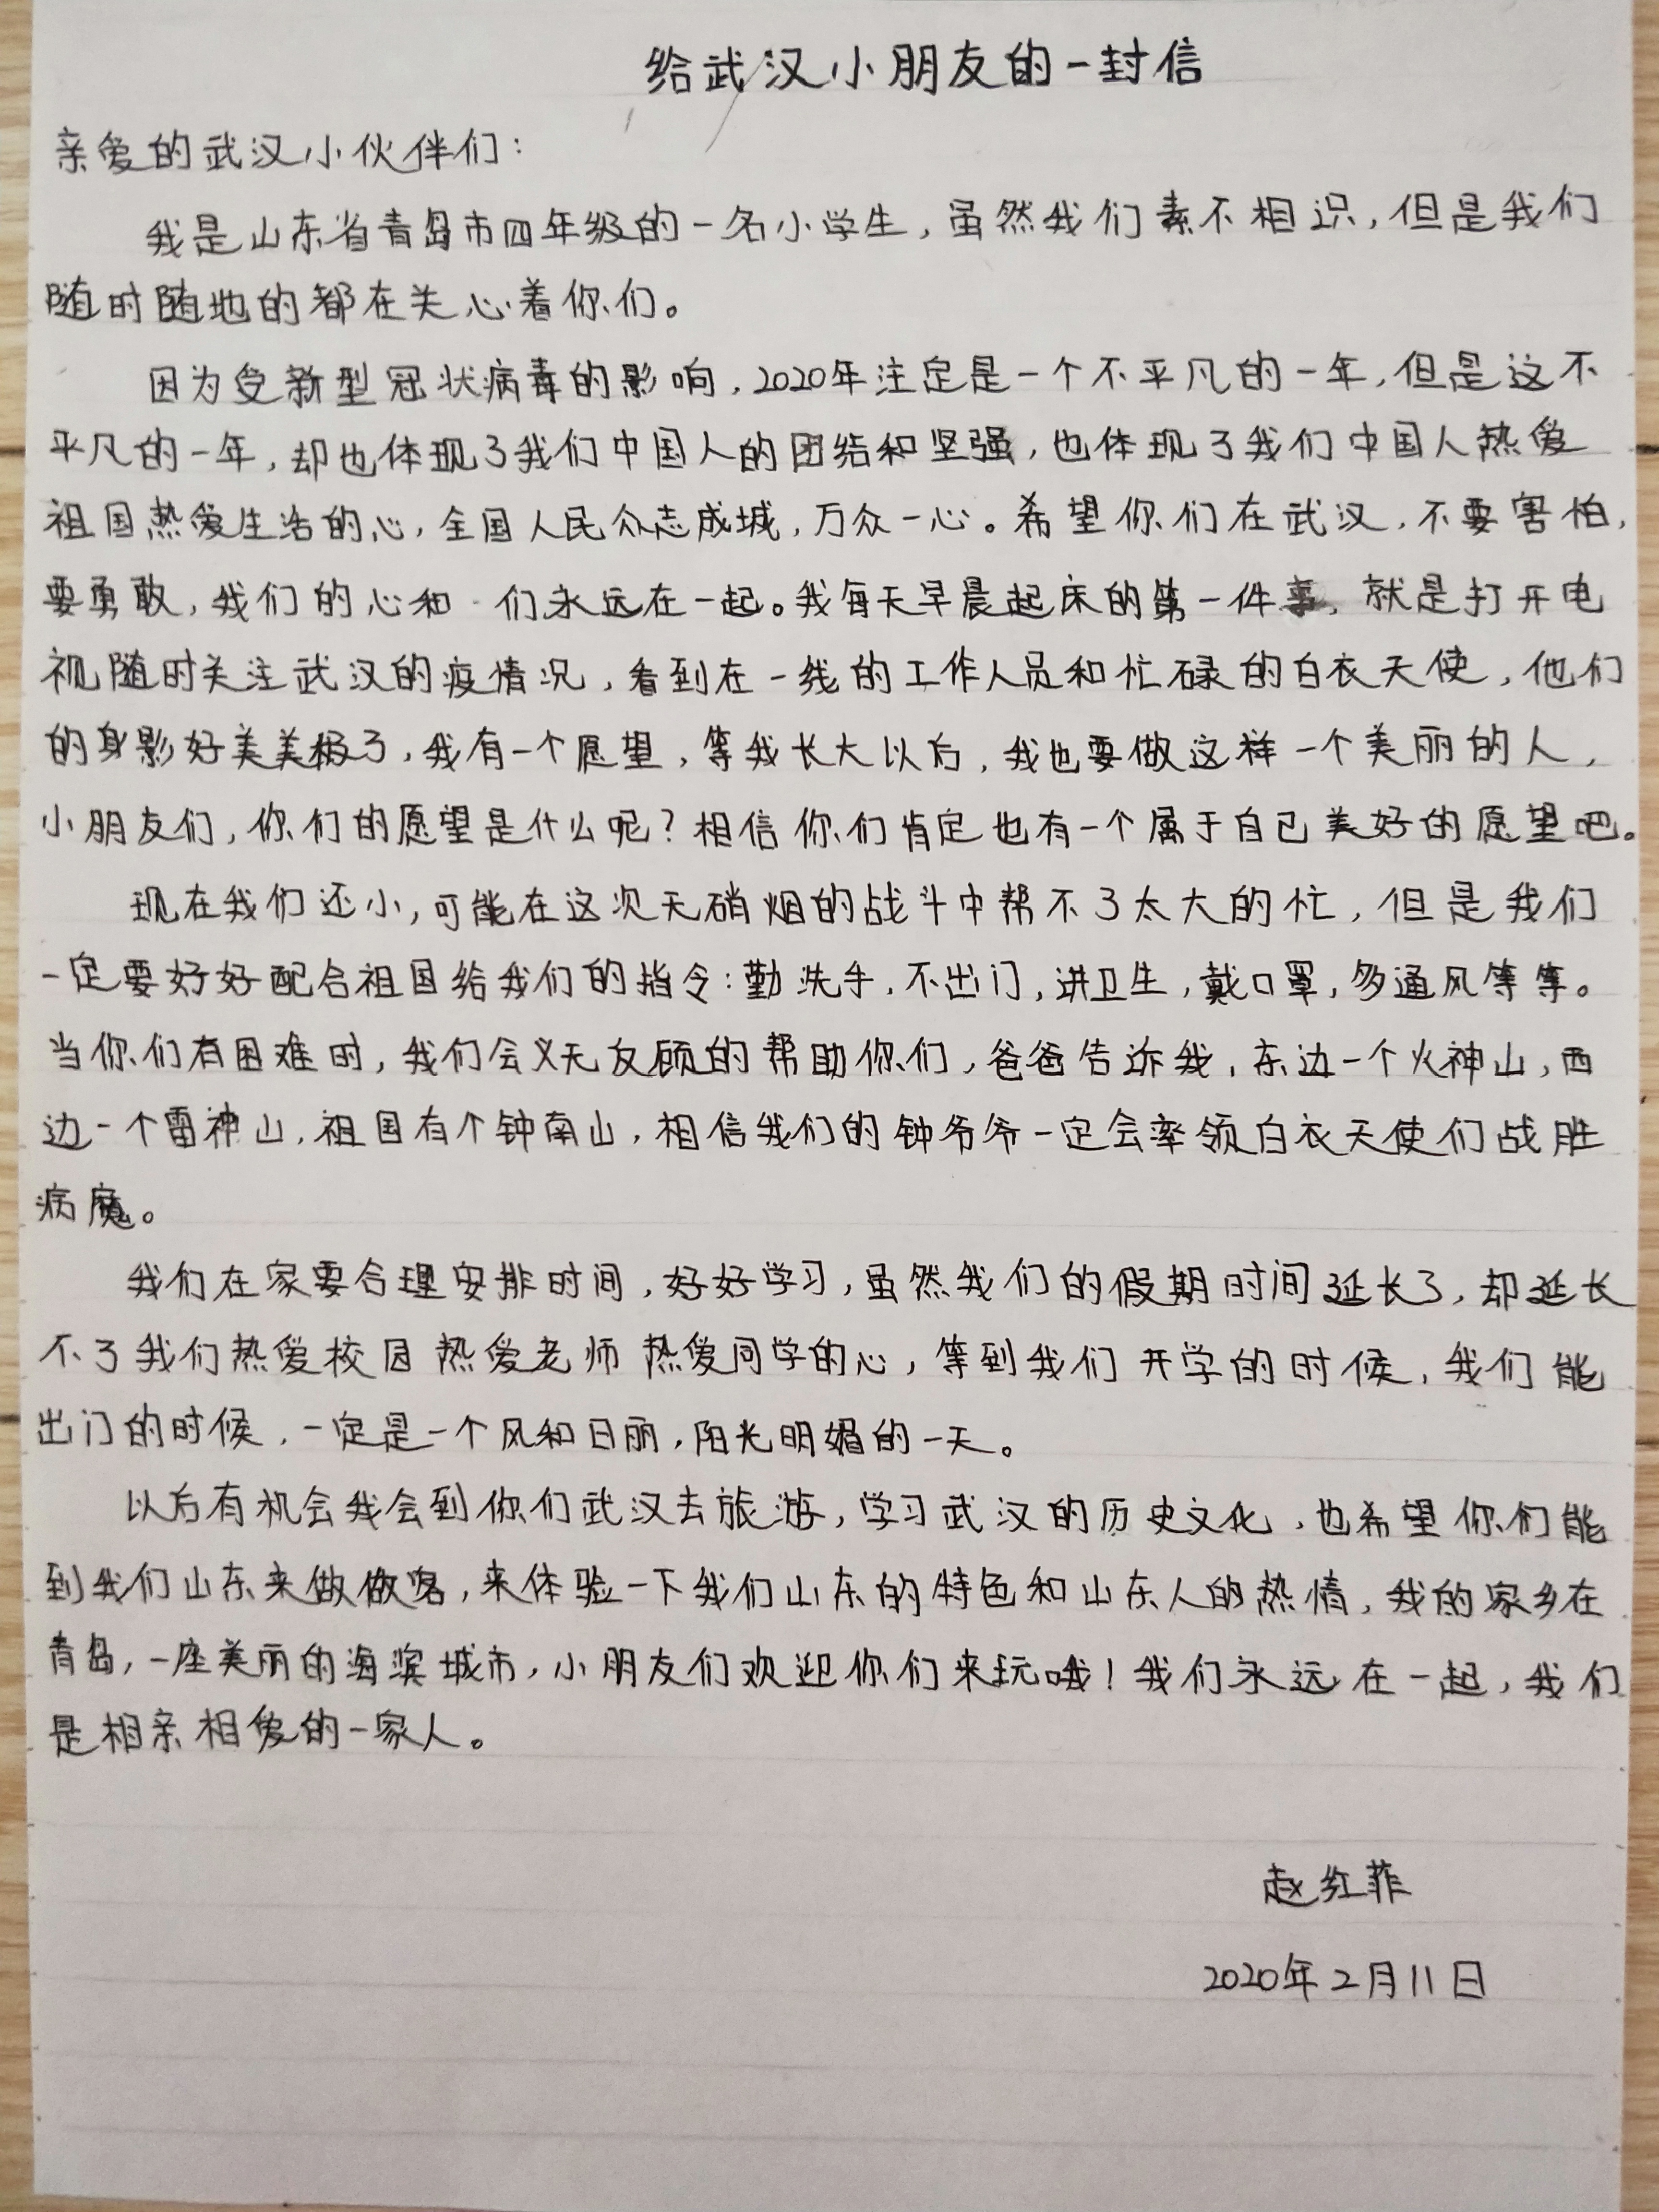 给武汉小朋友的一封信
亲爱的武汉小伙伴们：
我是山东省青岛市四年级的一名小学生，虽然我们素不相识，但是我们
随时随地的都在关心着你们。
因为受新型冠状病毒的影响，2020年注定是一个不平凡的一年，但是这不
平凡的一年，却也体现了我们中国人的团结和坚强，也体现了我们中国人热爱
祖国热爱生活的心，全国人民众志成城，万众一心。希望你们在武汉，不要害怕，
要勇敢，我们的心和 们永远在一起。我每天早晨起床的第一件事，就是打开电
视随时关注武汉的疫情况，看到在一线的工作人员和忙碌的白衣天使，他们
的身影好美美极了，我有一个愿望，等我长大以后，我也要做这样一个美丽的人，
小朋友们，你们的愿望是什么呢？相信你们肯定也有一个属于自己美好的愿望吧。
现在我们还小，可能在这次无硝烟的战斗中帮不了太大的忙，但是我们
一定要好好配合祖国给我们的指令：勤洗手，不出门，讲卫生，戴口罩，多通风等等。
当你们有困难时，我们会义无反顾的帮助你们，爸爸告诉我，东边一个火神山，西
边一个雷神山，祖国有个钟南山，相信我们的钟爷爷一定会率领白衣天使们战胜
病魔。
我们在家要合理安排时间，好好学习，虽然我们的假期时间延长了，却延长
不了我们热爱校园 热爱老师 热爱同学的心，等到我们开学的时候，我们能
出门的时候，一定是一个风和日丽，阳光明媚的一天。
以后有机会我会到你们武汉去旅游，学习武汉的历史文化，也希望你们能
到我们山东来做做客，来体验一下我们山东的特色和山东人的热情，我的家乡在
青岛，一座美丽的海滨城市，小朋友们欢迎你们来玩哦！我们永远在一起，我们
是相亲相爱的一家人。
赵红菲
2020年2月11日